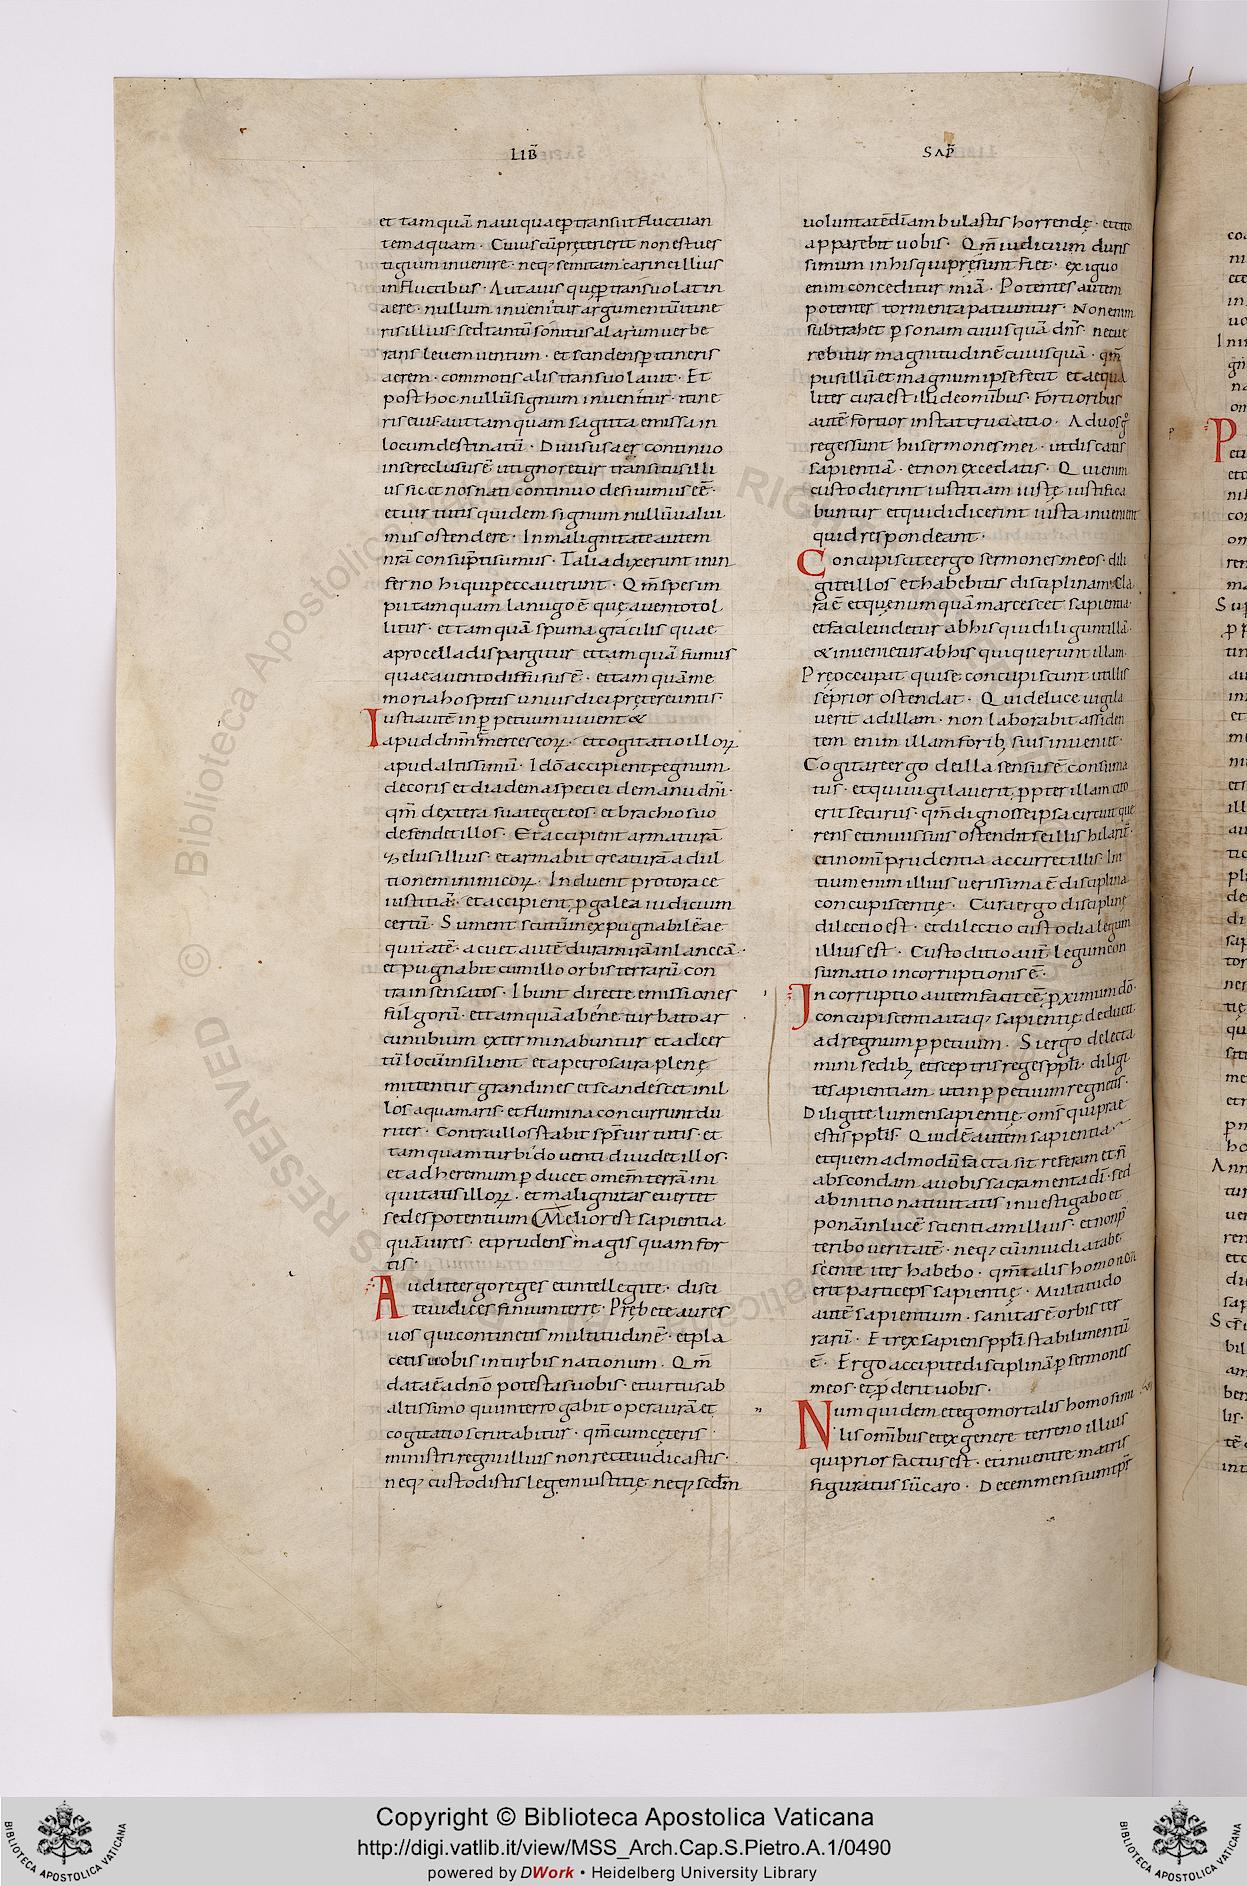 LIB̄
SAP̄
et tamquā nauis quae ꝑtransiit fluctuan
tem aquam · Cuius cū pręterierit non est ues
tigium inuenire · neq; semitam carinę illius
in fluctibus · Aut auis quę ꝑtransuolat in
aere · nullum inuenitur argumentū itine
ris illius · sed tantū sonitus alarum uerbe
rans leuem uentum · et scindens ꝑ itineris
aerem · commotis alis transuolauit · Et
post hoc nullū signum inuenitur · itine
ris eius · aut tamquam sagitta emissa in
locum destinatū · Diuisus aer continuo
in se reclusus ē · ut ignoretur transitus illi
us sic et nos nati continuo desiuimus eē ·
et uirtutis quidem signum nullū ualui
mus ostendere · In malignitate autem
nrā consumpti sumus · Talia dixerunt in in
ferno hi qui peccauerunt · Qm̄ spes im
pii tamquam lanugo ē quę a uento tol
litur · et tamquā spuma gracilis quae
a procella dispargitur et tamquā fumus
quae a uento diffusus ē · et tam quā me
moria hospitis unius diei pretereuntis ·
Iusti autē in ꝑpetuum uiuent &
apud dnm̄ ē merces eoꝝ · et cogitatio illoꝝ
apud altissimū · Ido accipient regnum
decoris et diadema speciei de manu dnī ·
qm̄ dextera sua teget eos · et brachio suo
defendet illos · Et accipient armaturā
zelus illius · et armabit creaturā ad ul
tionem inimicoꝝ · Induent pro torace
iustitiā · et accipient ꝑ galea iudicium
certū · Sument scutū inexpugnabilē ae
quitatē · acuet autē duram irā in lanceā ·
et pugnabit cum illo orbis terrarū con
tra insensatos · Ibunt directe emissiones
fulgorū · et tamquā a bene curbato ar
cu nubium exterminabuntur et ad cer
tū locū insilient · et a petrosa ira plenę
mittentur grandines et scandescet in il
los aqua maris · et flumina concurrunt du
riter · Contra illos stabit sps̄ uirtutis · et
tamquam turbido uenti diuidet illos ·
et ad heremum ꝑducet omem̄ terrā ini
quitatis illoꝝ · et malignitas euertet
sedes potentium Melior est sapientia
quā uires · et prudens magis quam for
tis ·
Audite ergo reges et intellegite · disci
te iudices finium terre · Prębete aures
uos qui continetis multitudinē · et pla
cetis uobis in turbis nationum · Qm̄
data ē a dnō potestas uobis · et uirtus ab
altissimo qui interrogabit opera urā et
cogitatio scrutabitur · qm̄ cum ceteris
ministri regni illius non recte iudicastis ·
neq; custodistis legem iustitię neq; scdm̄
uoluntatē dī ambulastis horrendę · et cito
apparebit uobis · Qm̄ iudicium duris
simum in his qui pręsunt fiet · exiguo
enim conceditur miā · Potentes autem
potenter tormenta patiuntur · Non enim
subtrahet ꝑsonam cuiusquā dn̄s · nec ue
rebitur magnitudinē cuiusquā · qm̄
pusillū et magnum ipse fecit et aequa
liter cura est illi de omībus · Fortioribus
autē fortior instat cruciatio · Ad uos g̊
reges sunt hi sermones mei · ut discatis
sapientiā · et non excedatis · Qui enim
custodierint iustitiam iustę iustifica
buntur et qui didicerint iusta inuenient
quid respondeant ·
Concupiscite ergo sermones meos · dili
gite illos et habebitis disciplinam · Cla
ra ē et quę numquā marcescet sapientia ·
et facile uidetur ab his qui diligunt illā ·
& inuenietur ab his qui querunt illam ·
Preoccupat qui se concupiscunt ut illis
se prior ostendat · Qui de luce uigila
uerit ad illam · non laborabit assiden
tem enim illam forib; suis inueniet ·
Cogitare ergo de illa sensus ē consuma
tus · et qui uigilauerit ꝓpter illam cito
erit securus · qm̄ dignos se ipsa circuit que
rens et in uiis suis ostendit se illis hilarit̄ ·
et in omī prudentia accurret illis · Ini
tium enim illius uerissima ē disciplina
concupiscentię · Cura ergo discipline
dilectio est · et dilectio custodia legum
illius est · Custoditio aut̄ legum con
sumatio incorruptionis ē ·
Incorruptio autem facit eē ꝓximum dō ·
concupiscentia itaq; sapientię deducit
ad regnum ꝑpetuum · Si ergo delecta
mini sedib; et sceptris reges ppl̄i · diligi
te sapientiam ut in ꝑpetuum regnetis ·
Diligite lumen sapientię oms̄ qui prae
estis ppl̄is · Quid ē autem sapientia
et quem ad modū facta sit referam et n̄
abscondam a uobis sacramenta dī · sed
ab initio natiuitatis inuestigabo et
ponā in lucē scientiam illius · et non p̄
teribo ueritatē · neq; cū inuidia tabe
scente iter habebo · qm̄ talis homo non
erit particeps sapientię · Multitudo
autē sapientium · sanitas ē orbis ter
rarū · Et rex sapiens ppl̄i stabilimentū
ē · Ergo accipite disciplinā ꝑ sermones
meos · et p̄derit uobis ·
Num quidem et ego mortalis homo simi
lis omībus et ex genere terreno illius
qui prior factus est · et in uentre matris
figuratus sū caro · Decem mensium tpr̄
Copyright © Biblioteca Apostolica Vaticana
http://digi.vatlib.it/view/MSS_Arch.Cap.S.Pietro.A.1/0490
powered by DWork • Heidelberg University Library